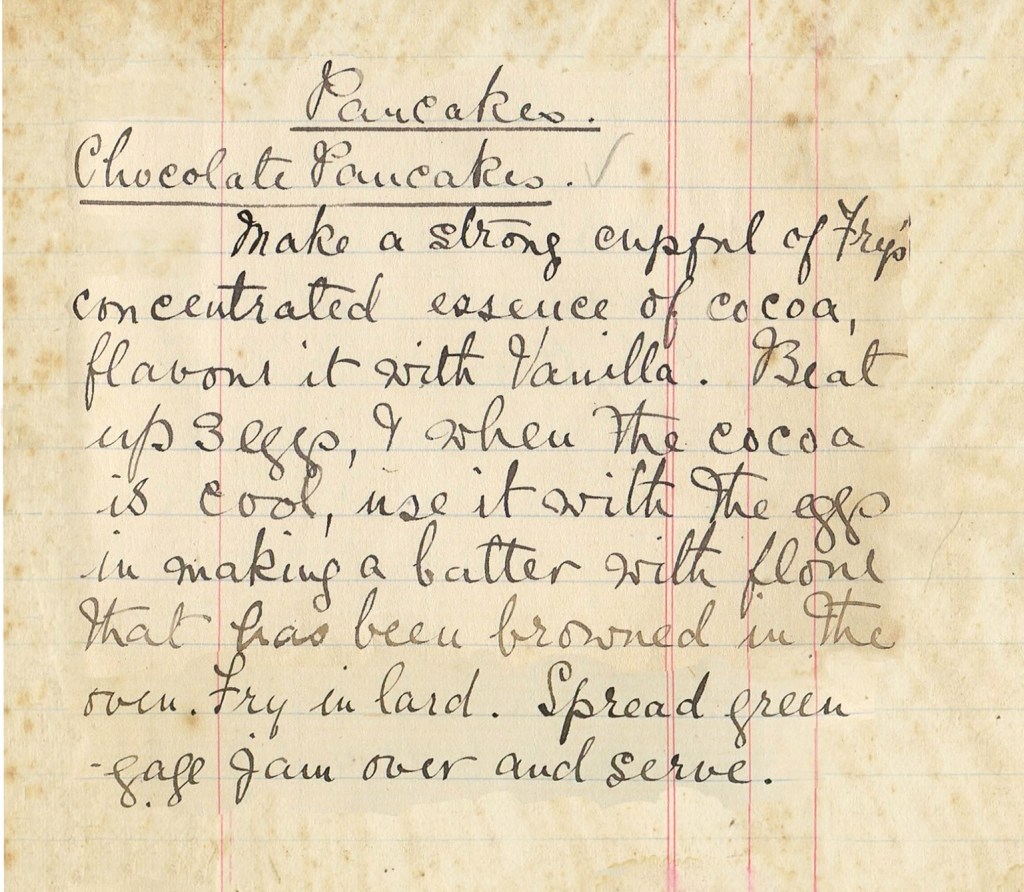 Pancakes.
Chocolate Pancakes.
Make a strong cupful of Fry's
concentrated essence of cocoa,
flavour it with Vanilla. Beat
up 3 eggs, & when the cocoa
is cool, use it with the eggs
in making a batter with flour
that has been browned in the
oven. Fry in lard. Spread green
-gage jam over and serve.